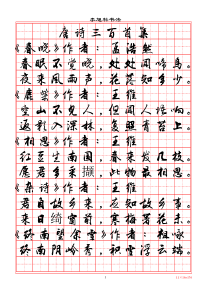 李慧彬书法
唐诗三百首集
《春晓》作者：孟浩然
春眠不觉晓，处处闻啼鸟。
夜来风雨声，花落知多少。
《鹿柴》作者：王维
空山不见人，但闻人语响。
返影入深林，复照青苔上。
《相思》作者：王维
红豆生南国，春来发几枝。
愿君多采撷，此物最相思。
《杂诗》作者：王维
君自故乡来，应知故乡事。
来日绮窗前，寒梅著花未。
《终南望余雪》作者：祖咏
终南阴岭秀，积雪浮云端。
1